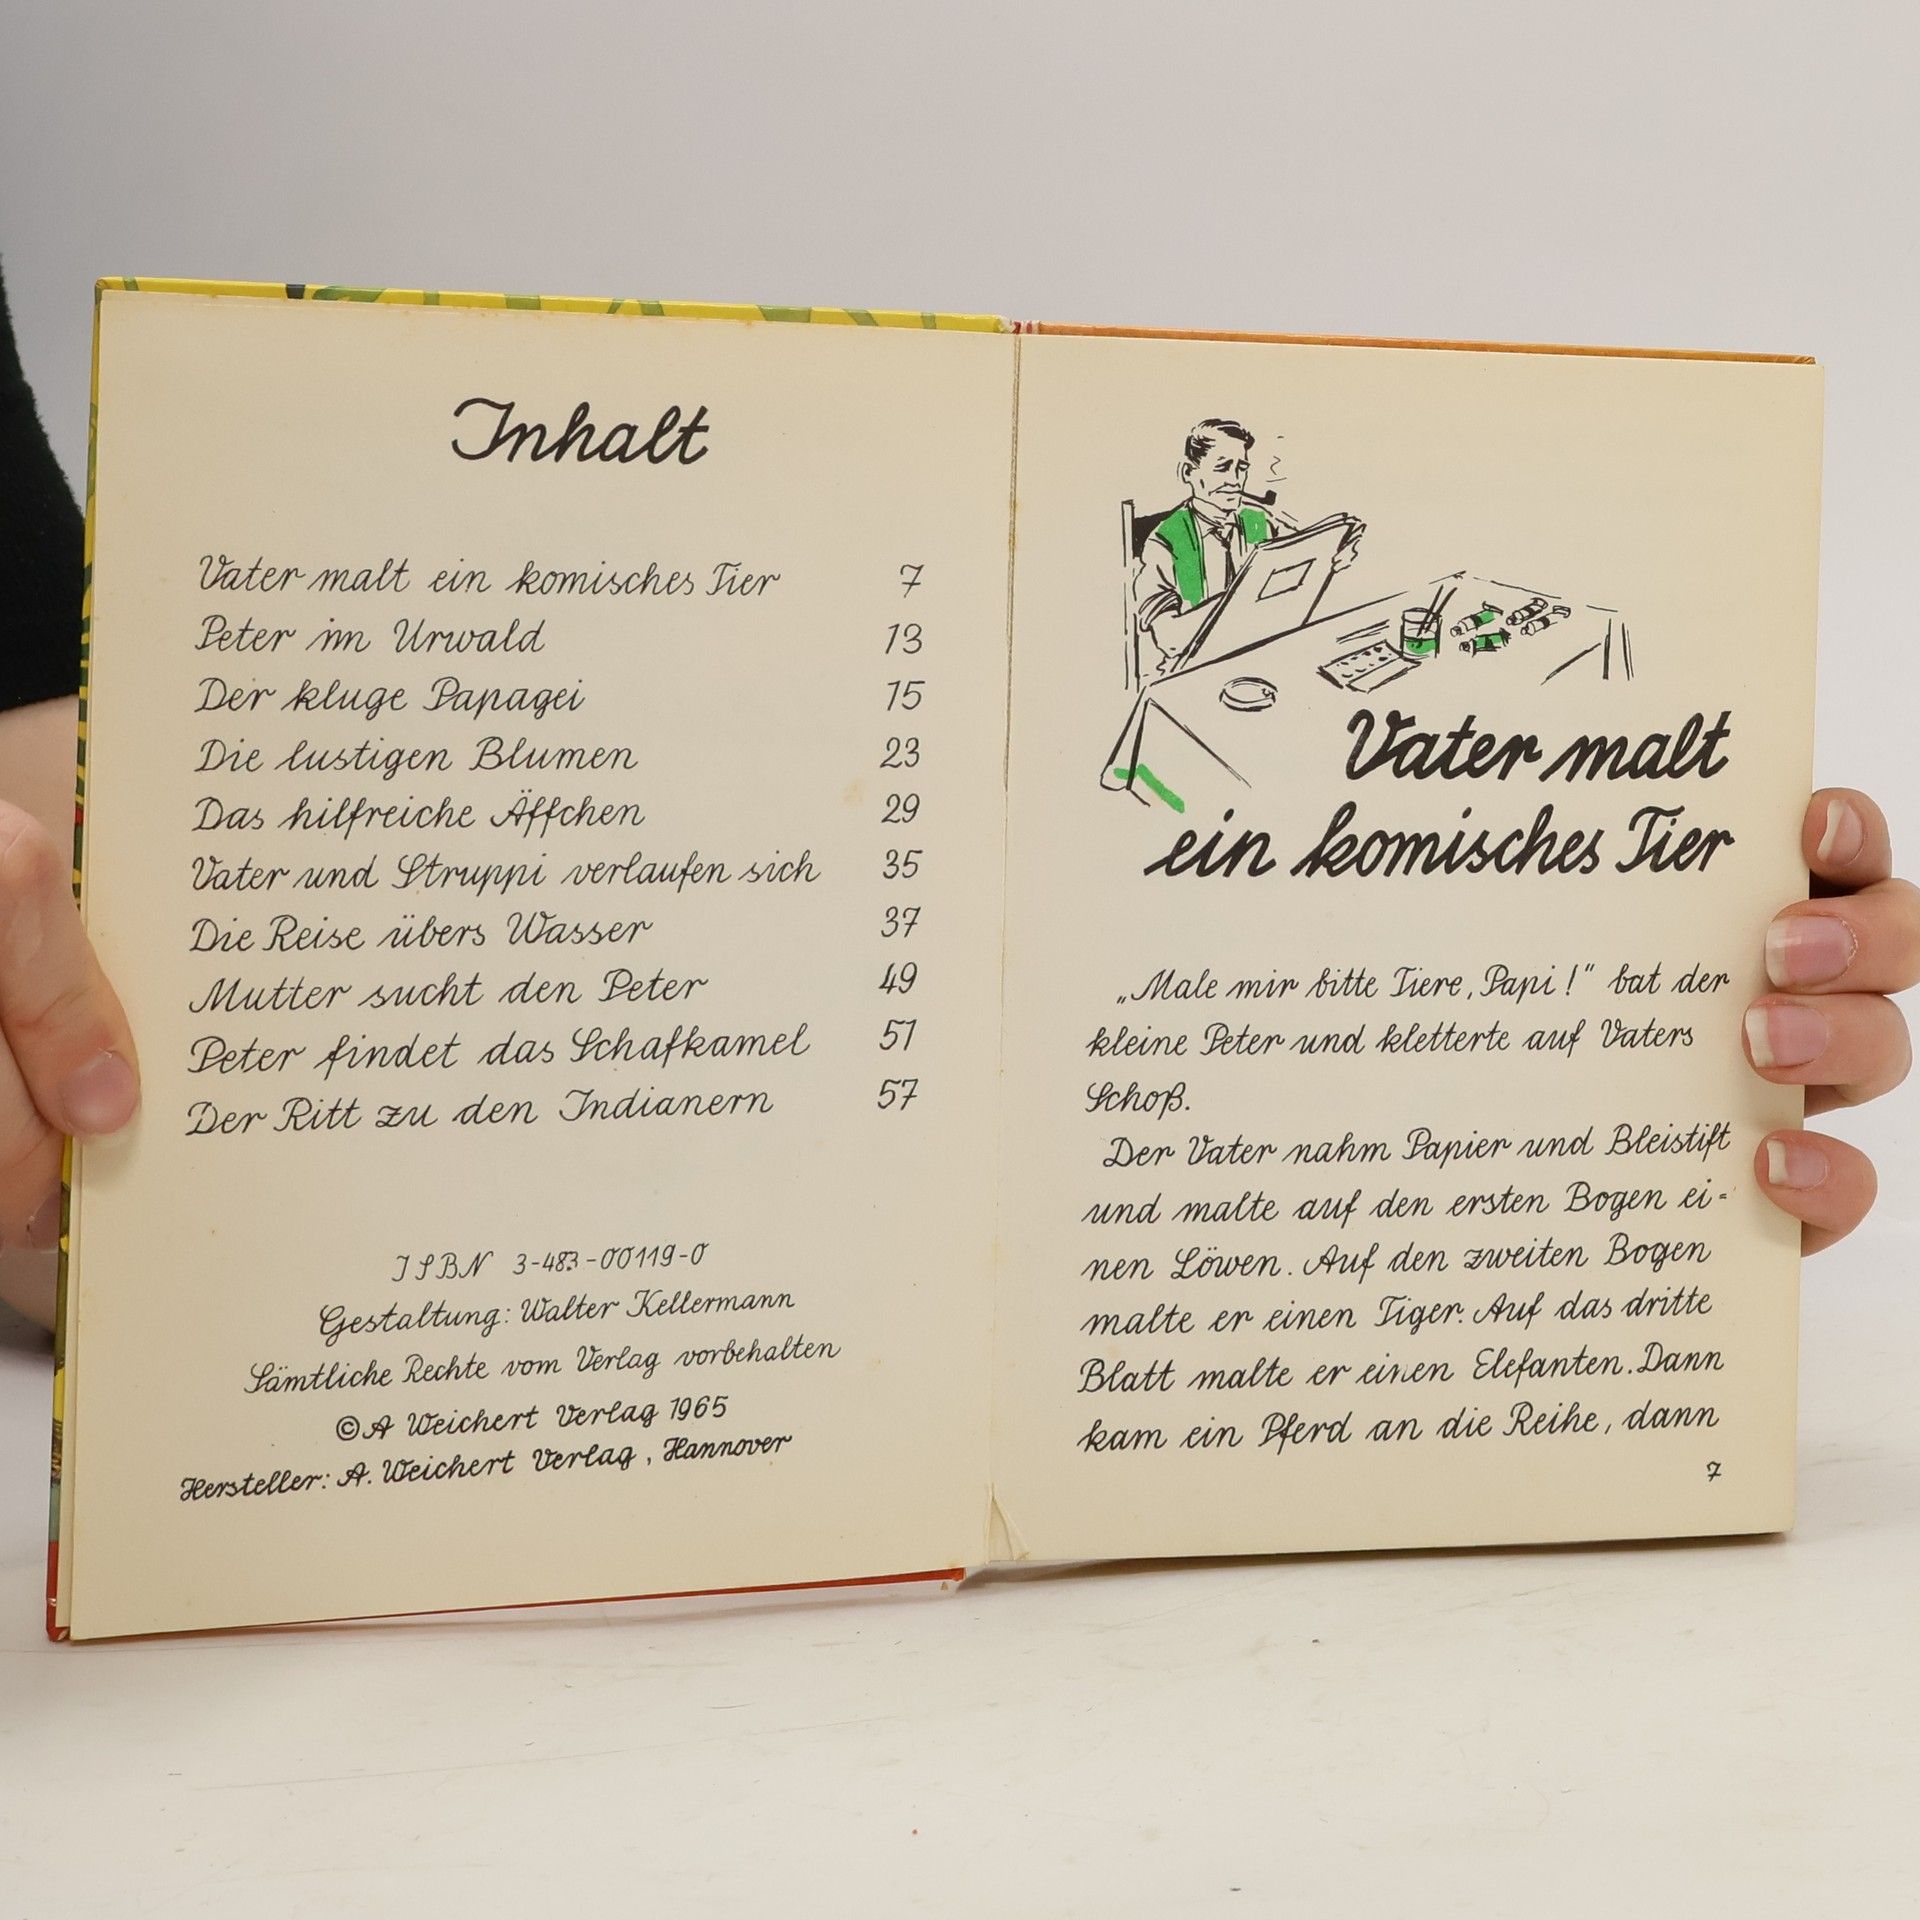 Inhalt
Vater malt ein komisches Tier 7
Peter im Urwald 13
Der kluge Papagei 15
Die lustigen Blumen 23
Das hilfreiche Äffchen 29
Vater und Struppi verlaufen sich 35
Die Reise übers Wasser 37
Mutter sucht den Peter 49
Peter findet das Schafkamel 51
Der Ritt zu den Indianern 57
ISBN 3-483-00119-0
Gestaltung: Walter Kellermann
Sämtliche Rechte vom Verlag vorbehalten
© A Weichert Verlag 1965
Hersteller: A. Weichert Verlag, Hannover
Vater malt
ein komisches Tier
„Male mir bitte Tiere, Papi!" bat der
kleine Peter und kletterte auf Vaters
Schoß.
Der Vater nahm Papier und Bleistift
und malte auf den ersten Bogen ei=
nen Löwen. Auf den zweiten Bogen
malte er einen Tiger. Auf das dritte
Blatt malte er einen Elefanten. Dann
kam ein Pferd an die Reihe, dann
7